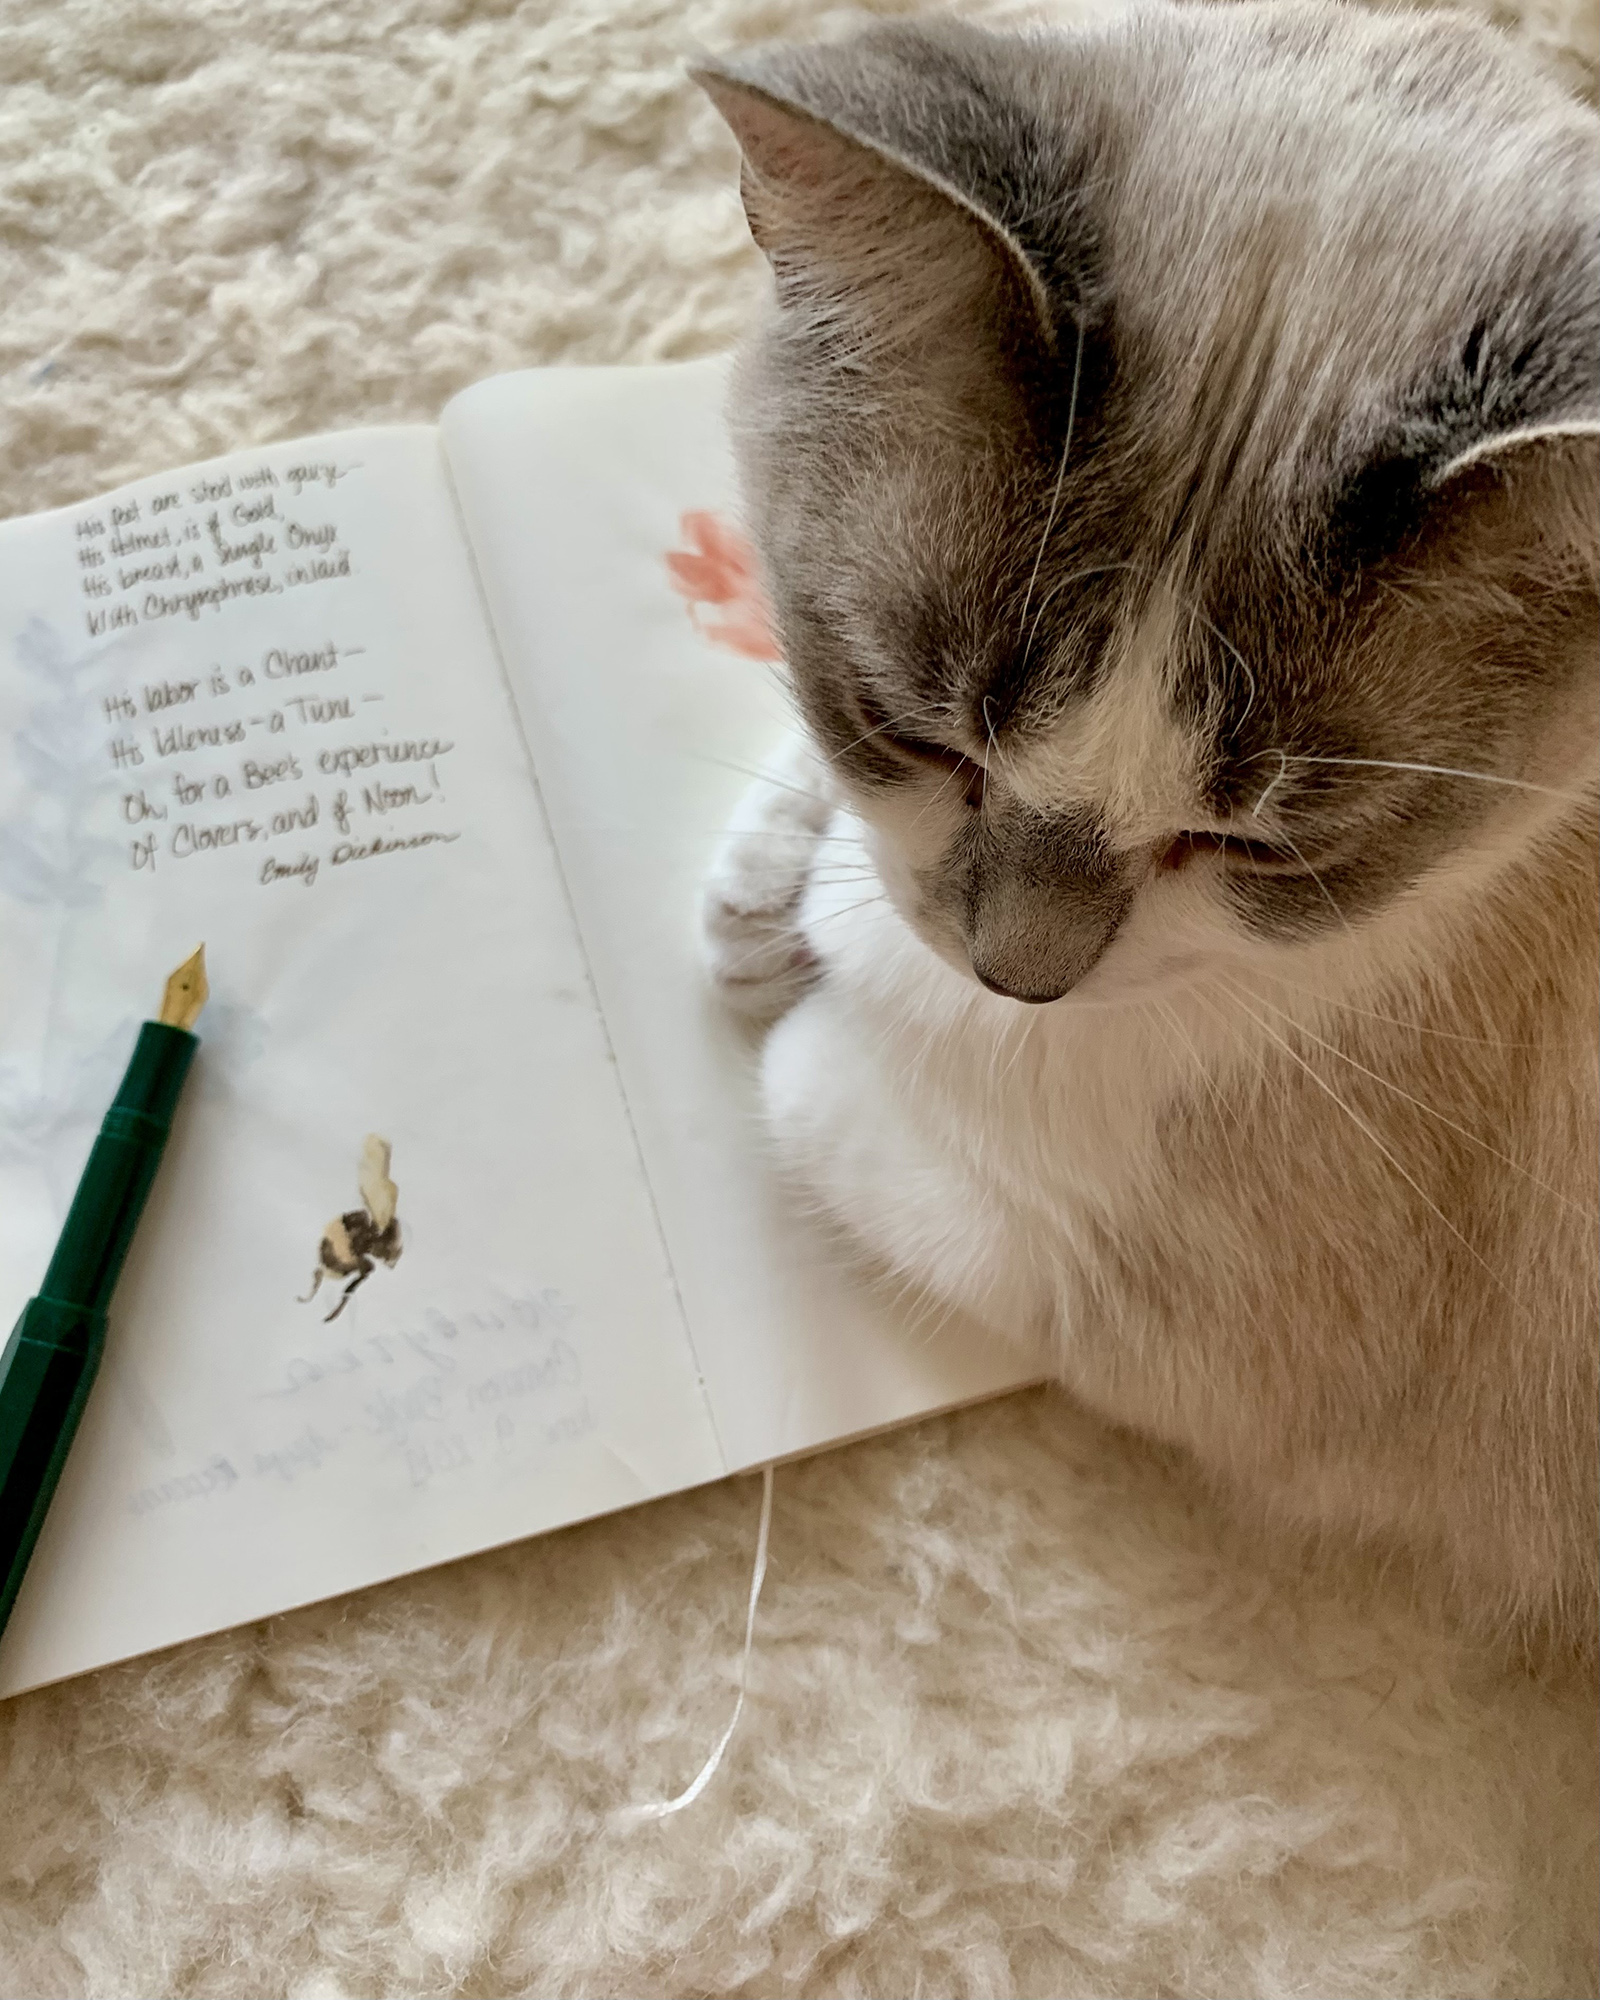 His feet are shod with gauze—
His Helmet, is of Gold,
His breast, a Single Onyx
With Chrysophrase, inlaid.
His labor is a Chant—
His Idleness—a Tune—
Oh, for a Bee's experience
Of Clovers, and of Noon!
Emily Dickinson